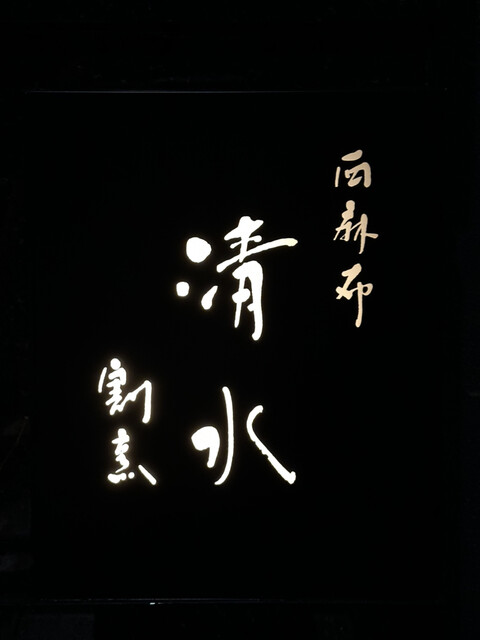 西麻布
清水
割烹